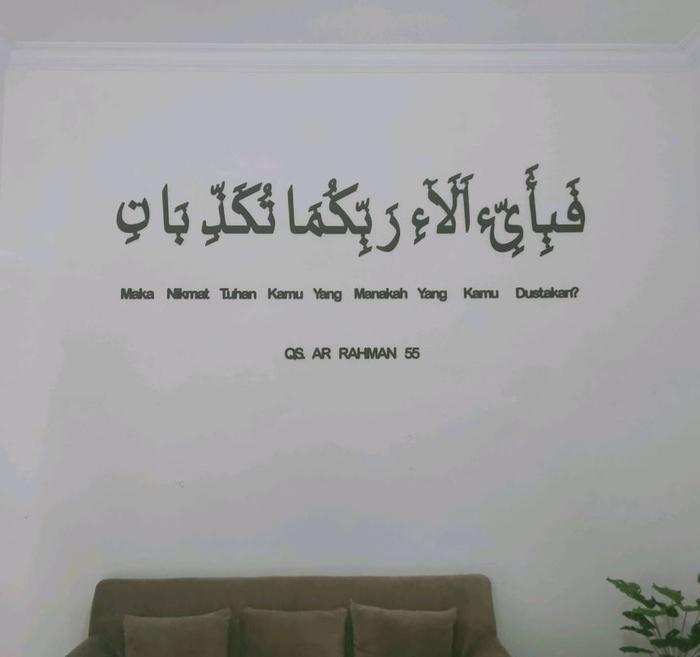 فَبِأَيِّءَالَآءِ رَبِّكُمَا تُكَذِّبَانِ
Maka Nikmat Tuhan Kamu Yang Manakah Yang Kamu Dustakan?
QS. AR RAHMAN 55